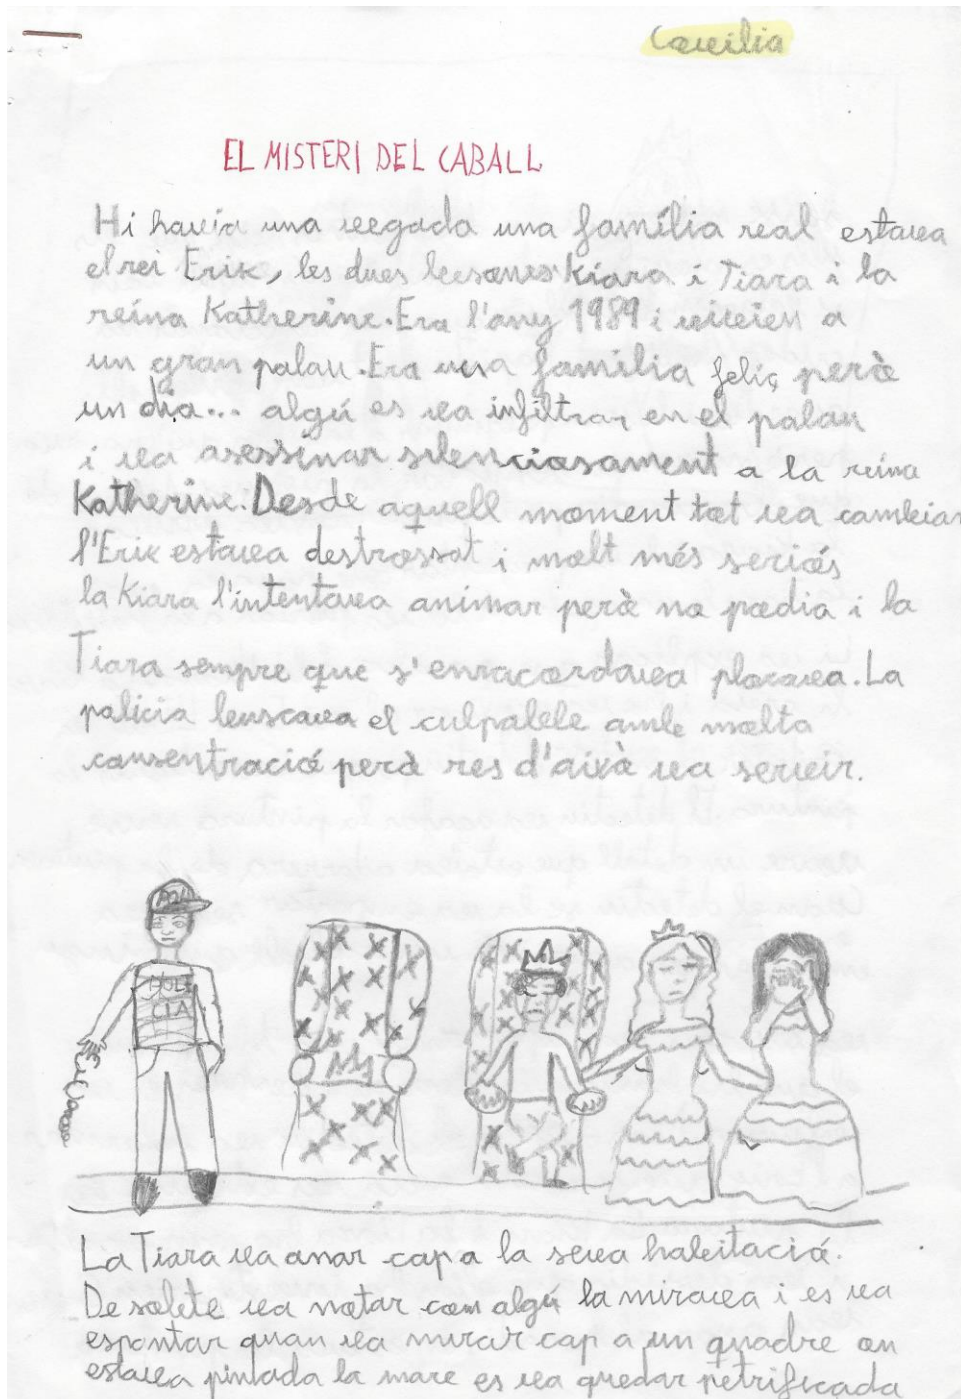 EL MISTERI DEL CABALL
Hi havia una vegada una família real estava
el rei Erik, les dues besones Kiara i Tiara i la
reina Katherine. Era l'any 1989 i vivien a
un gran palau. Era una família feliç però
un dia... algú es va infiltrar en el palau
i va asessinar silenciosament a la reina
Katherine. Desde aquell moment tot va cambiar
l'Erik estava destrossat i molt més seriós
la Kiara l'intentava animar però no podia i la
Tiara sempre que s'enracordava plorava. La
policia buscava el culpable amb molta
consentració però res d'això va servir.
POLI
POLI
CIA
La Tiara va anar cap a la seva habitació.
De sobte va notar com algú la mirava i es va
espontar quan va mirar cap a un quadre on
estava pintada la mare es va quedar petrificada